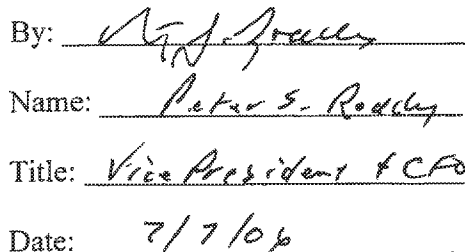 By:
Name: Peter S. Roddy
Title: Vice President & CFO
Date: 7/7/06